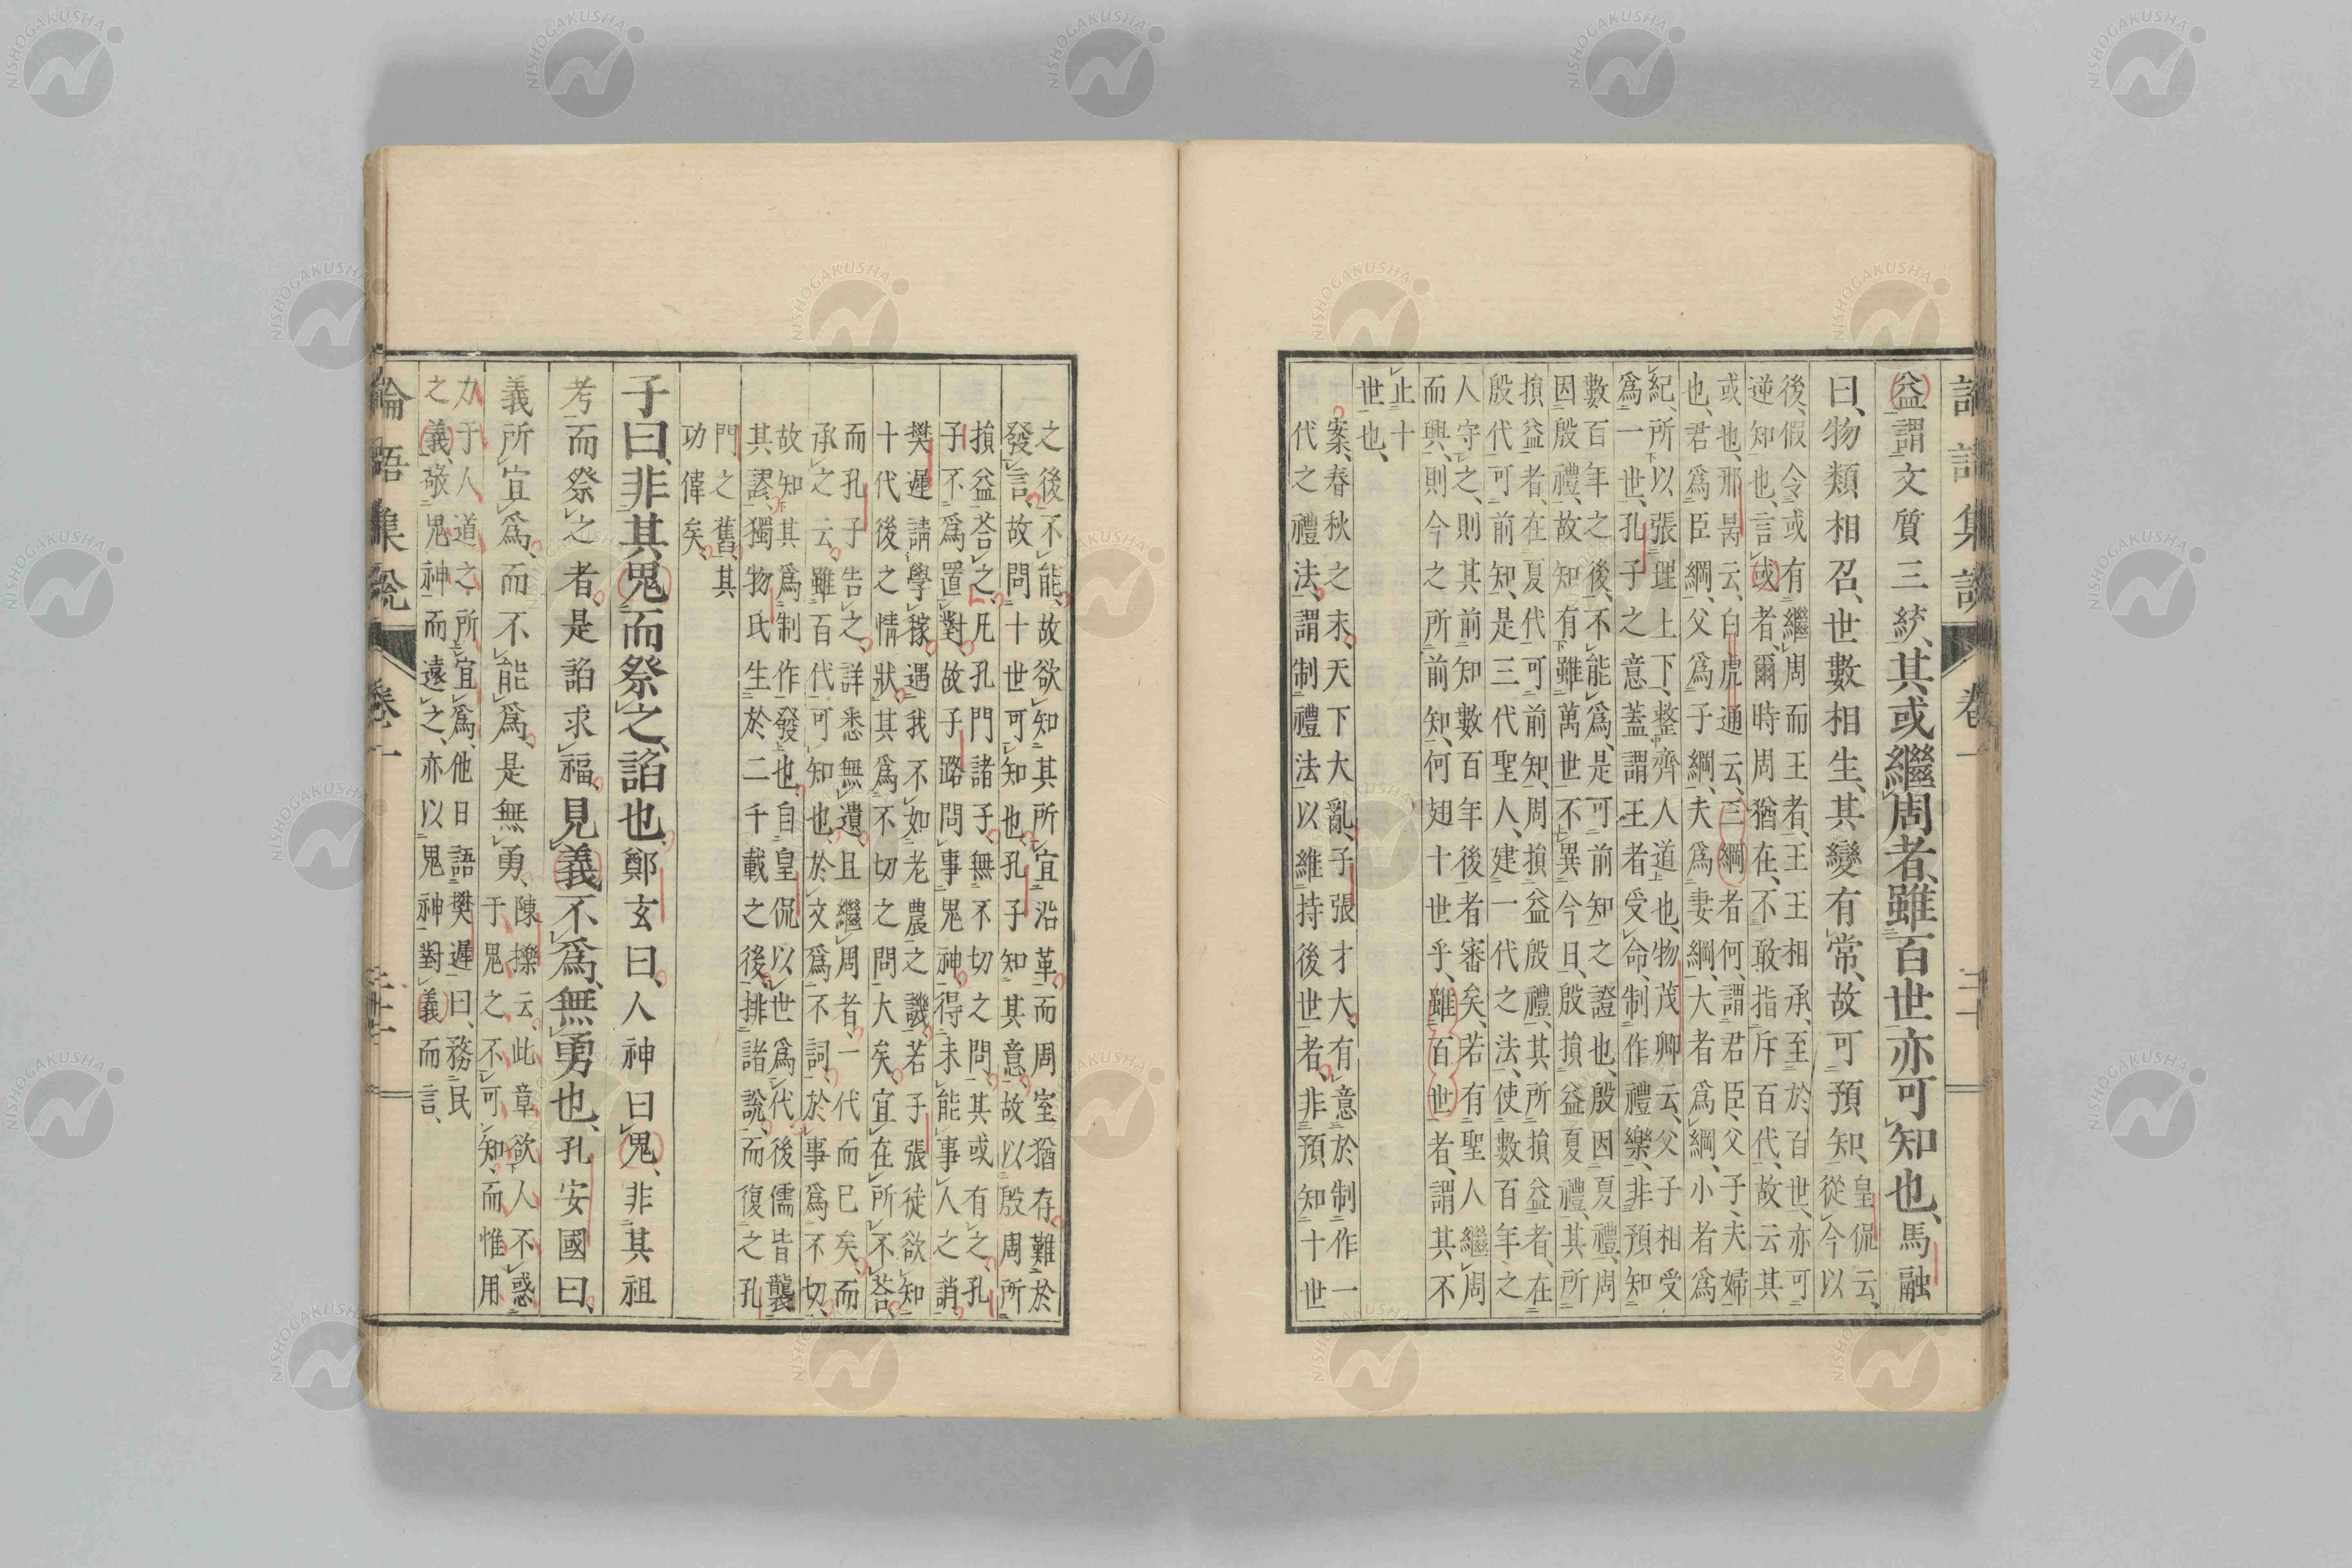 論語集說 卷一
益謂文質三統、其或繼周者、雖百世亦可知也、馬融
曰、物類相召、世數相生、其變有常、故可預知、皇侃云、
從今以
後、假令或有繼周而王者、王王相承、至於百世、亦可
逆知也、言或者、爾時周猶在、不敢指斥百代、故云其
或也、邢昺云、白虎通云、三綱者何、謂君臣、父子、夫婦
也、君爲臣綱、父爲子綱、夫爲妻綱、大者爲綱、小者爲
紀、所以張理上下、整齊人道也、物茂卿云、父子相受
爲一世、孔子之意蓋謂王者受命、制作禮樂、非預知
數百年之後、不能爲、是可前知之證也、殷因夏禮、周
因殷禮、故知有雖萬世不異今日、殷損益夏禮、其所
損益者、在夏代可前知、周損益殷禮、其所損益者、在
殷代可前知、是三代聖人、建一代之法、使數百年之
人守之、則其前知數百年後者審矣、若有聖人繼周
而興、則今之所前知、何翅十世乎、雖百世者、謂其不
止十
世也、
案、春秋之末、天下大亂、子張才大、有意於制作一
代之禮法、謂制禮法以維持後世者、非預知十世
之後、不能、故欲知其所宜沿革、而周室猶存、難於
發言、故問十世可知也、孔子知其意、故以殷周所
損益荅之、凡孔門諸子、無不切之問、其或有之、孔
子不爲置對、故子路問事鬼神、得未能事人之誚、
樊遲請學稼、遇我不如老農之譏、若子張徒欲知
十代後之情狀、其爲不切之問大矣、宜在所不荅、
而孔子告之、詳悉無遺、且繼周者、一代而已矣、而
承之云、雖百代可知也、於文爲不詞、於事爲不切、
故知其爲制作發也、自皇侃以世爲代、後儒皆襲
其謬、獨物氏生於二千載之後、排諸說、而復之孔
門之舊、其
功偉矣、
子曰、非其鬼而祭之、諂也、鄭玄曰、人神曰鬼、非其祖
考而祭之者、是諂求福、見義不爲、無勇也、孔安國曰、
義所宜爲、而不能爲、是無勇、陳櫟云、此章欲人不惑
于鬼之不可知、而惟用
力于人道之所宜爲、他日語樊遲曰、務民
之義、敬鬼神而遠之、亦以鬼神對義而言、
論語集說 卷一
NISHOGAKUSHA